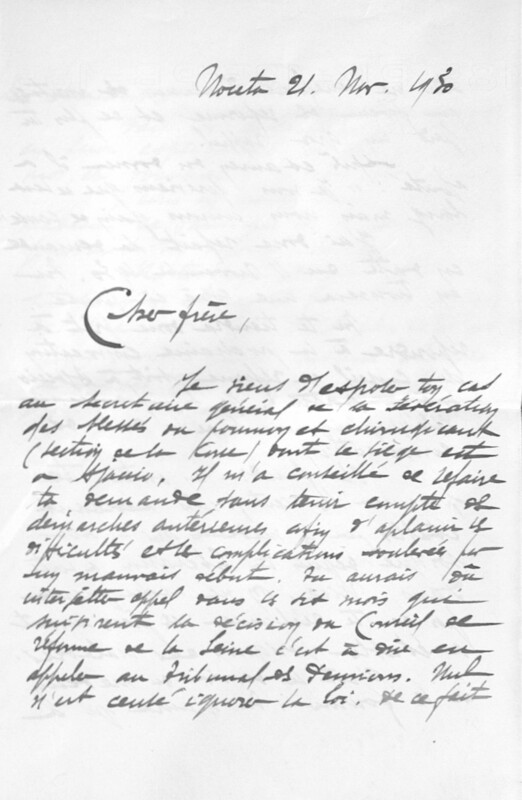 Noceta 21. Nov. 1930
Cher frère,
Je viens d'exposer ton cas
au Secrétaire général de la Fédération
des blessés du poumon et chirurgicaux
(section de la Corse) dont le siège est
à Ajaccio. Il m'a conseillé de refaire
ta demande sans tenir compte des
démarches antérieures afin d'aplanir les
difficultés et les complications soulevées par
un mauvais début. Tu aurais dû
interjeter appel dans les six mois qui
suivirent la décision du Conseil de
réforme de la Seine c'est à dire en
appeler au tribunal des Pensions. Nul
n'est censé ignorer la loi. De ce fait